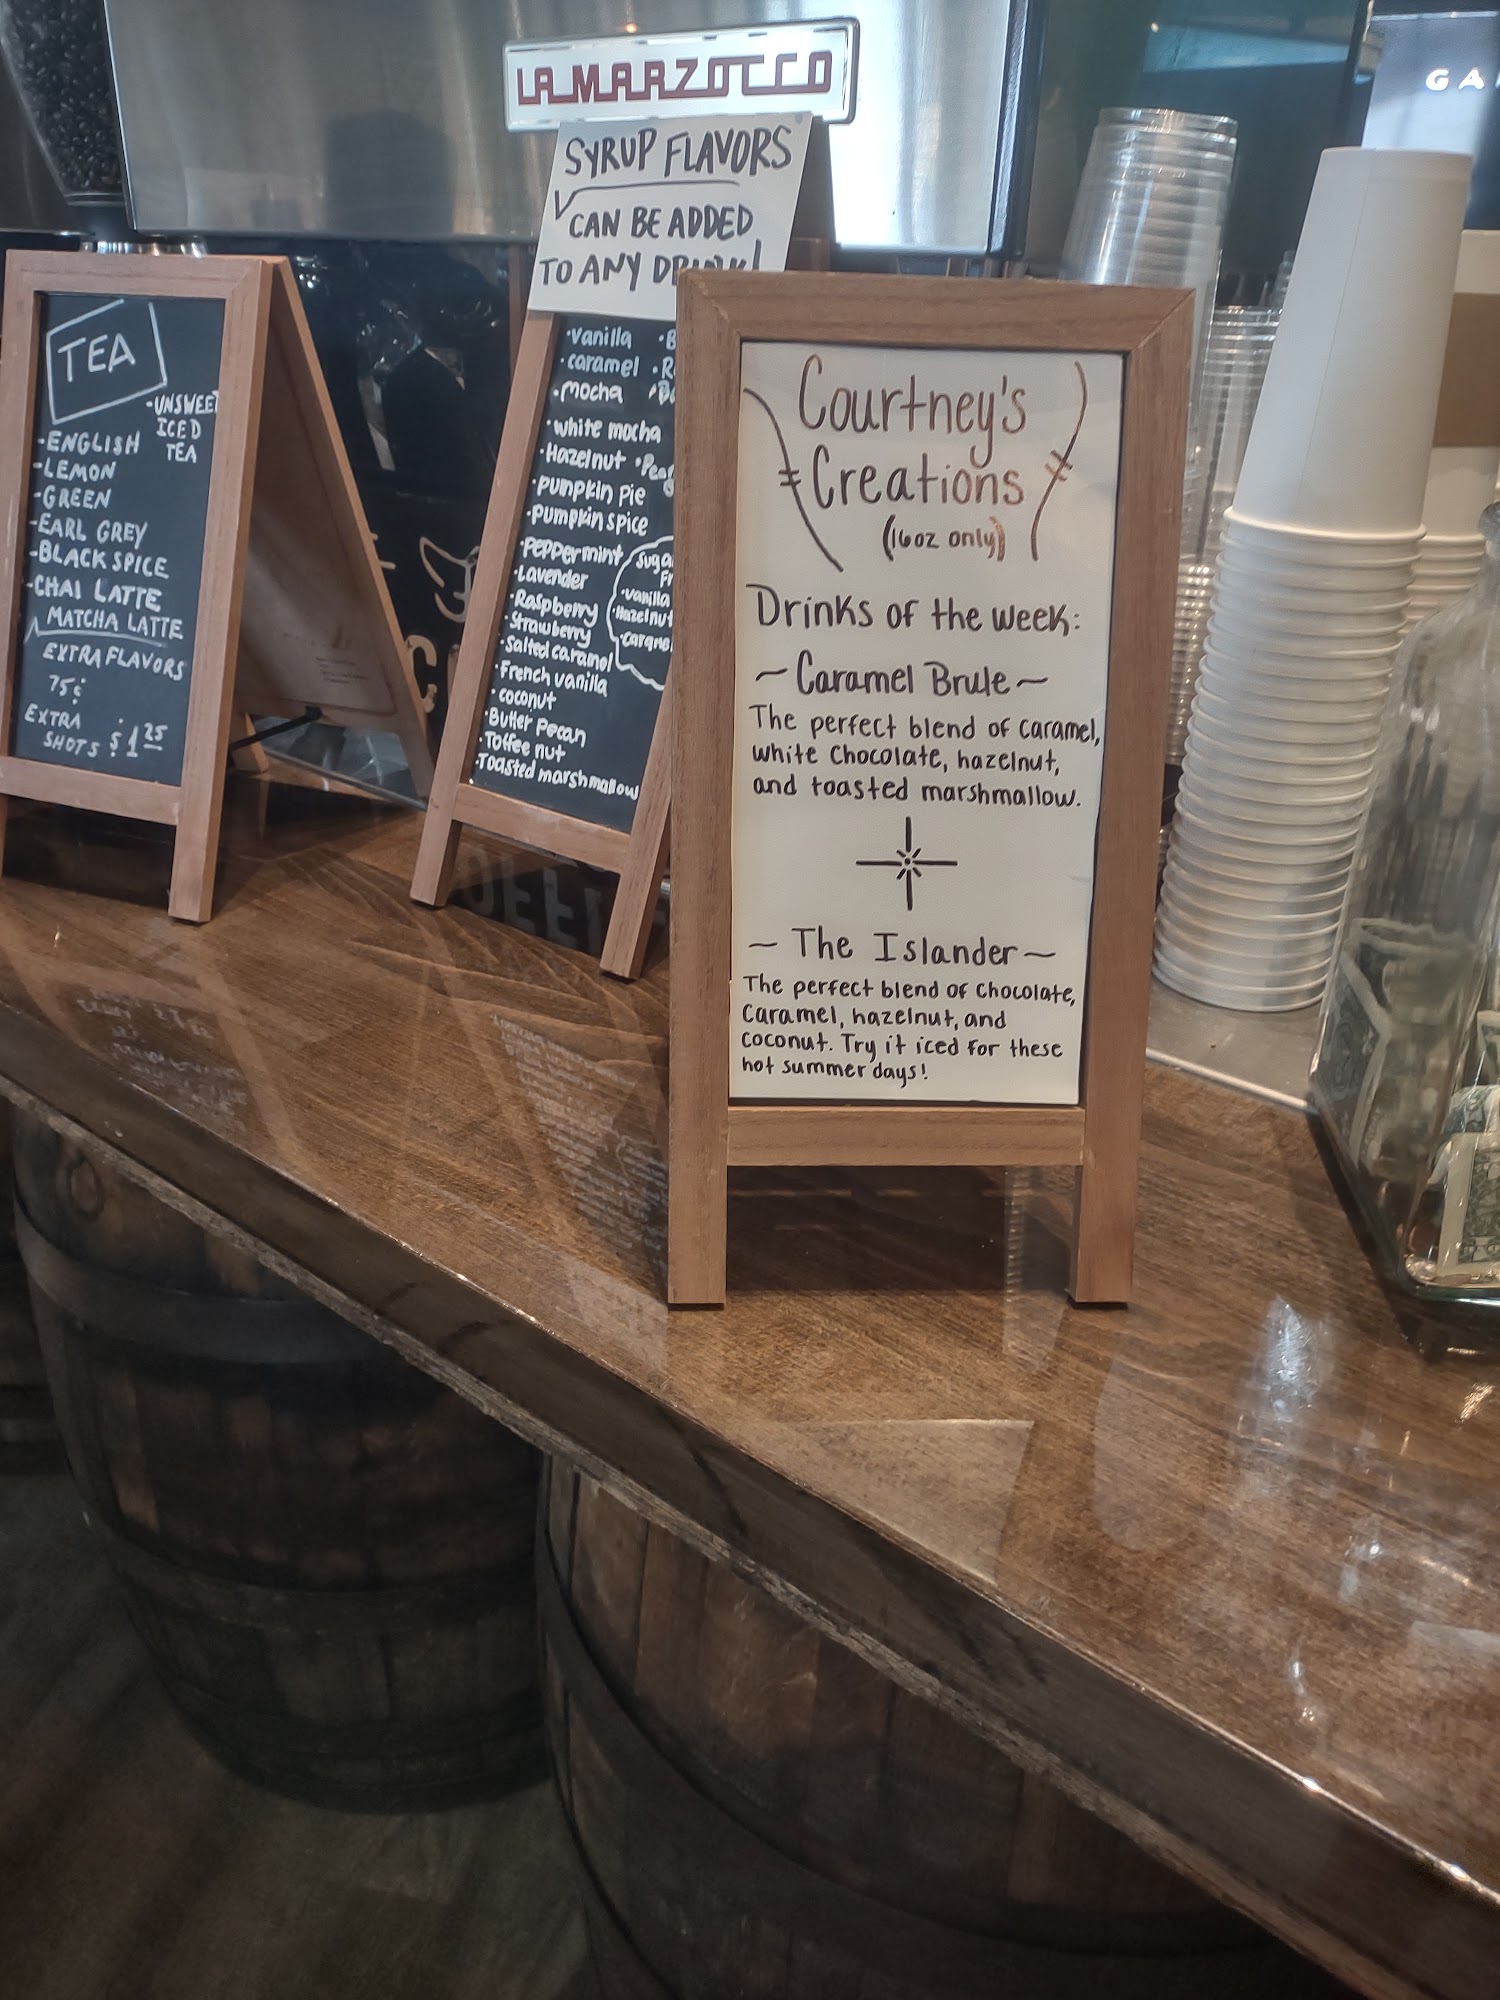 LA MARZOCCO
GA
SYRUP FLAVORS
CAN BE ADDED
TO ANY DRINK!
TEA
-UNSWEET
ICED
TEA
-ENGLISH
-LEMON
-GREEN
-EARL GREY
-BLACK SPICE
-CHAI LATTE
MATCHA LATTE
EXTRA FLAVORS
75¢
EXTRA
SHOTS $1.25
·vanilla
·caramel
·mocha
·white mocha
·Hazelnut
·pumpkin pie
·pumpkin spice
·peppermint
·Lavender
·Raspberry
·Strawberry
·Salted caramel
·French vanilla
·coconut
·Butter pecan
·Toffee nut
·Toasted marshmallow
·vanilla
·Hazelnut
Courtney's
Creations
(16oz only)
Drinks of the week:
~Caramel Brule~
The perfect blend of caramel,
white chocolate, hazelnut,
and toasted marshmallow.
~ The Islander~
The perfect blend of chocolate,
caramel, hazelnut, and
coconut. Try it iced for these
hot summer days!